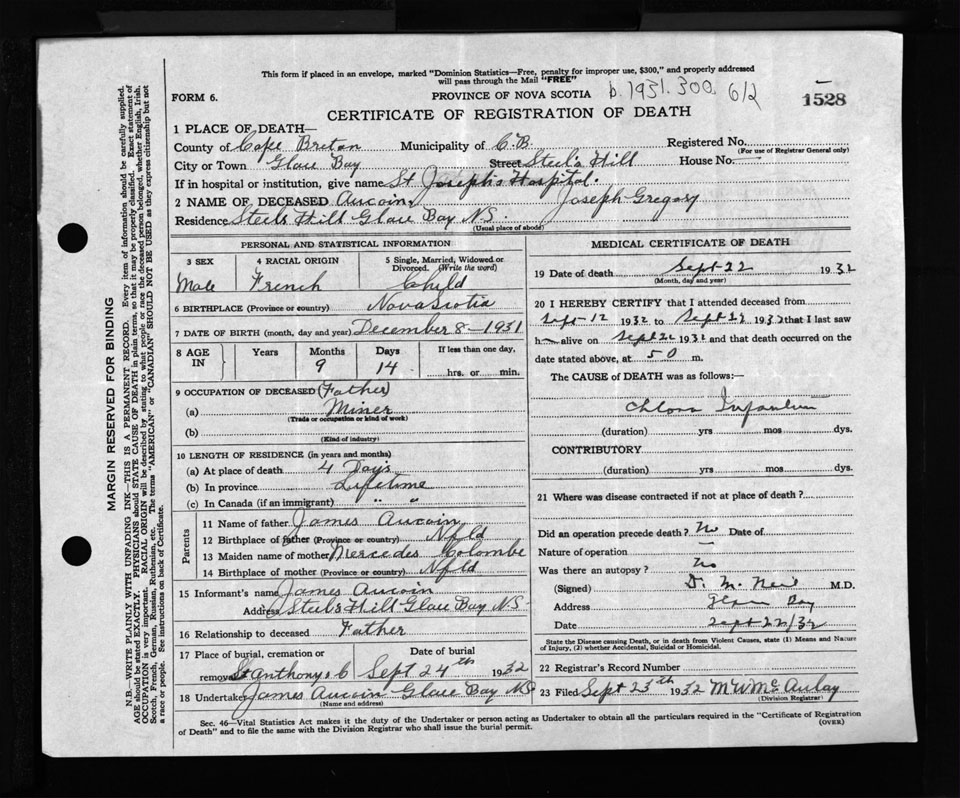 This form if placed in an envelope, marked "Dominion Statistics—Free, penalty for improper use, $300," and properly addressed
will pass through the Mail "FREE"
FORM 6. PROVINCE OF NOVA SCOTIA b. 1931. 300. 612 1528
CERTIFICATE OF REGISTRATION OF DEATH
1 PLACE OF DEATH—
County of Cape Breton Municipality of C.B. Registered No.
(For use of Registrar General only)
City or Town Glace Bay Street Steel's Hill House No. —
If in hospital or institution, give name St Joseph's Hospital.
2 NAME OF DECEASED Aucoin, Joseph Gregory
Residence Steel's Hill Glace Bay N.S.
(Usual place of abode)
PERSONAL AND STATISTICAL INFORMATION
3 SEX 4 RACIAL ORIGIN 5 Single, Married, Widowed or
Divorced. (Write the word)
Male French Child
6 BIRTHPLACE (Province or country) Nova Scotia
7 DATE OF BIRTH (month, day and year) December 8 - 1931
8 AGE IN Years Months Days If less than one day,
9 14 hrs. or min.
9 OCCUPATION OF DECEASED (Father)
(a) Miner
(Trade or occupation or kind of work)
(b)
(Kind of industry)
10 LENGTH OF RESIDENCE (in years and months)
(a) At place of death 4 Days
(b) In province Lifetime
(c) In Canada (if an immigrant) " "
Parents
11 Name of father James Aucoin
12 Birthplace of father (Province or country) Nfld
13 Maiden name of mother Mercedes Colombe
14 Birthplace of mother (Province or country) Nfld
15 Informant's name James Aucoin
Address Steel's Hill Glace Bay N.S.
16 Relationship to deceased Father
17 Place of burial, cremation or Date of burial
removal St Anthony's C Sept 24th 1932
18 Undertaker James Aucoin Glace Bay NS
(Name and address)
MEDICAL CERTIFICATE OF DEATH
19 Date of death Sept 22 1932
(Month, day and year)
20 I HEREBY CERTIFY that I attended deceased from
Sept 12 1932 to Sept 22 1932 that I last saw
h alive on Sept 22 1932 and that death occurred on the
date stated above, at 50 m.
The CAUSE of DEATH was as follows:—
Infantum
(duration) yrs mos dys.
CONTRIBUTORY
(duration) yrs mos dys.
21 Where was disease contracted if not at place of death?
Did an operation precede death? No Date of
Nature of operation —
Was there an autopsy? No
(Signed) D. M. Neil M.D.
Address Glace Bay
Date Sept 22/32
State the Disease causing Death, or in death from Violent Causes, state (1) Means and Nature
of Injury, (2) whether Accidental, Suicidal or Homicidal.
22 Registrar's Record Number
23 Filed Sept 23th 1932 M W McAulay
(Division Registrar)
Sec. 46—Vital Statistics Act makes it the duty of the Undertaker or person acting as Undertaker to obtain all the particulars required in the "Certificate of Registration
of Death" and to file the same with the Division Registrar who shall issue the burial permit. (OVER)
MARGIN RESERVED FOR BINDING
N.B.—WRITE PLAINLY WITH UNFADING INK—THIS IS A PERMANENT RECORD. Every item of information should be carefully supplied.
AGE should be stated EXACTLY. PHYSICIANS should STATE CAUSE OF DEATH in plain terms, so that it may be properly classified. Exact statement of
OCCUPATION is very important. RACIAL ORIGIN will be described by stating to what people or race the deceased person belonged, whether English, Irish,
Scotch, French, German, Russian, Ruthenian, etc. The terms "AMERICAN" or "CANADIAN" SHOULD NOT BE USED as they express citizenship but not
a race or people. See instructions on back of Certificate.